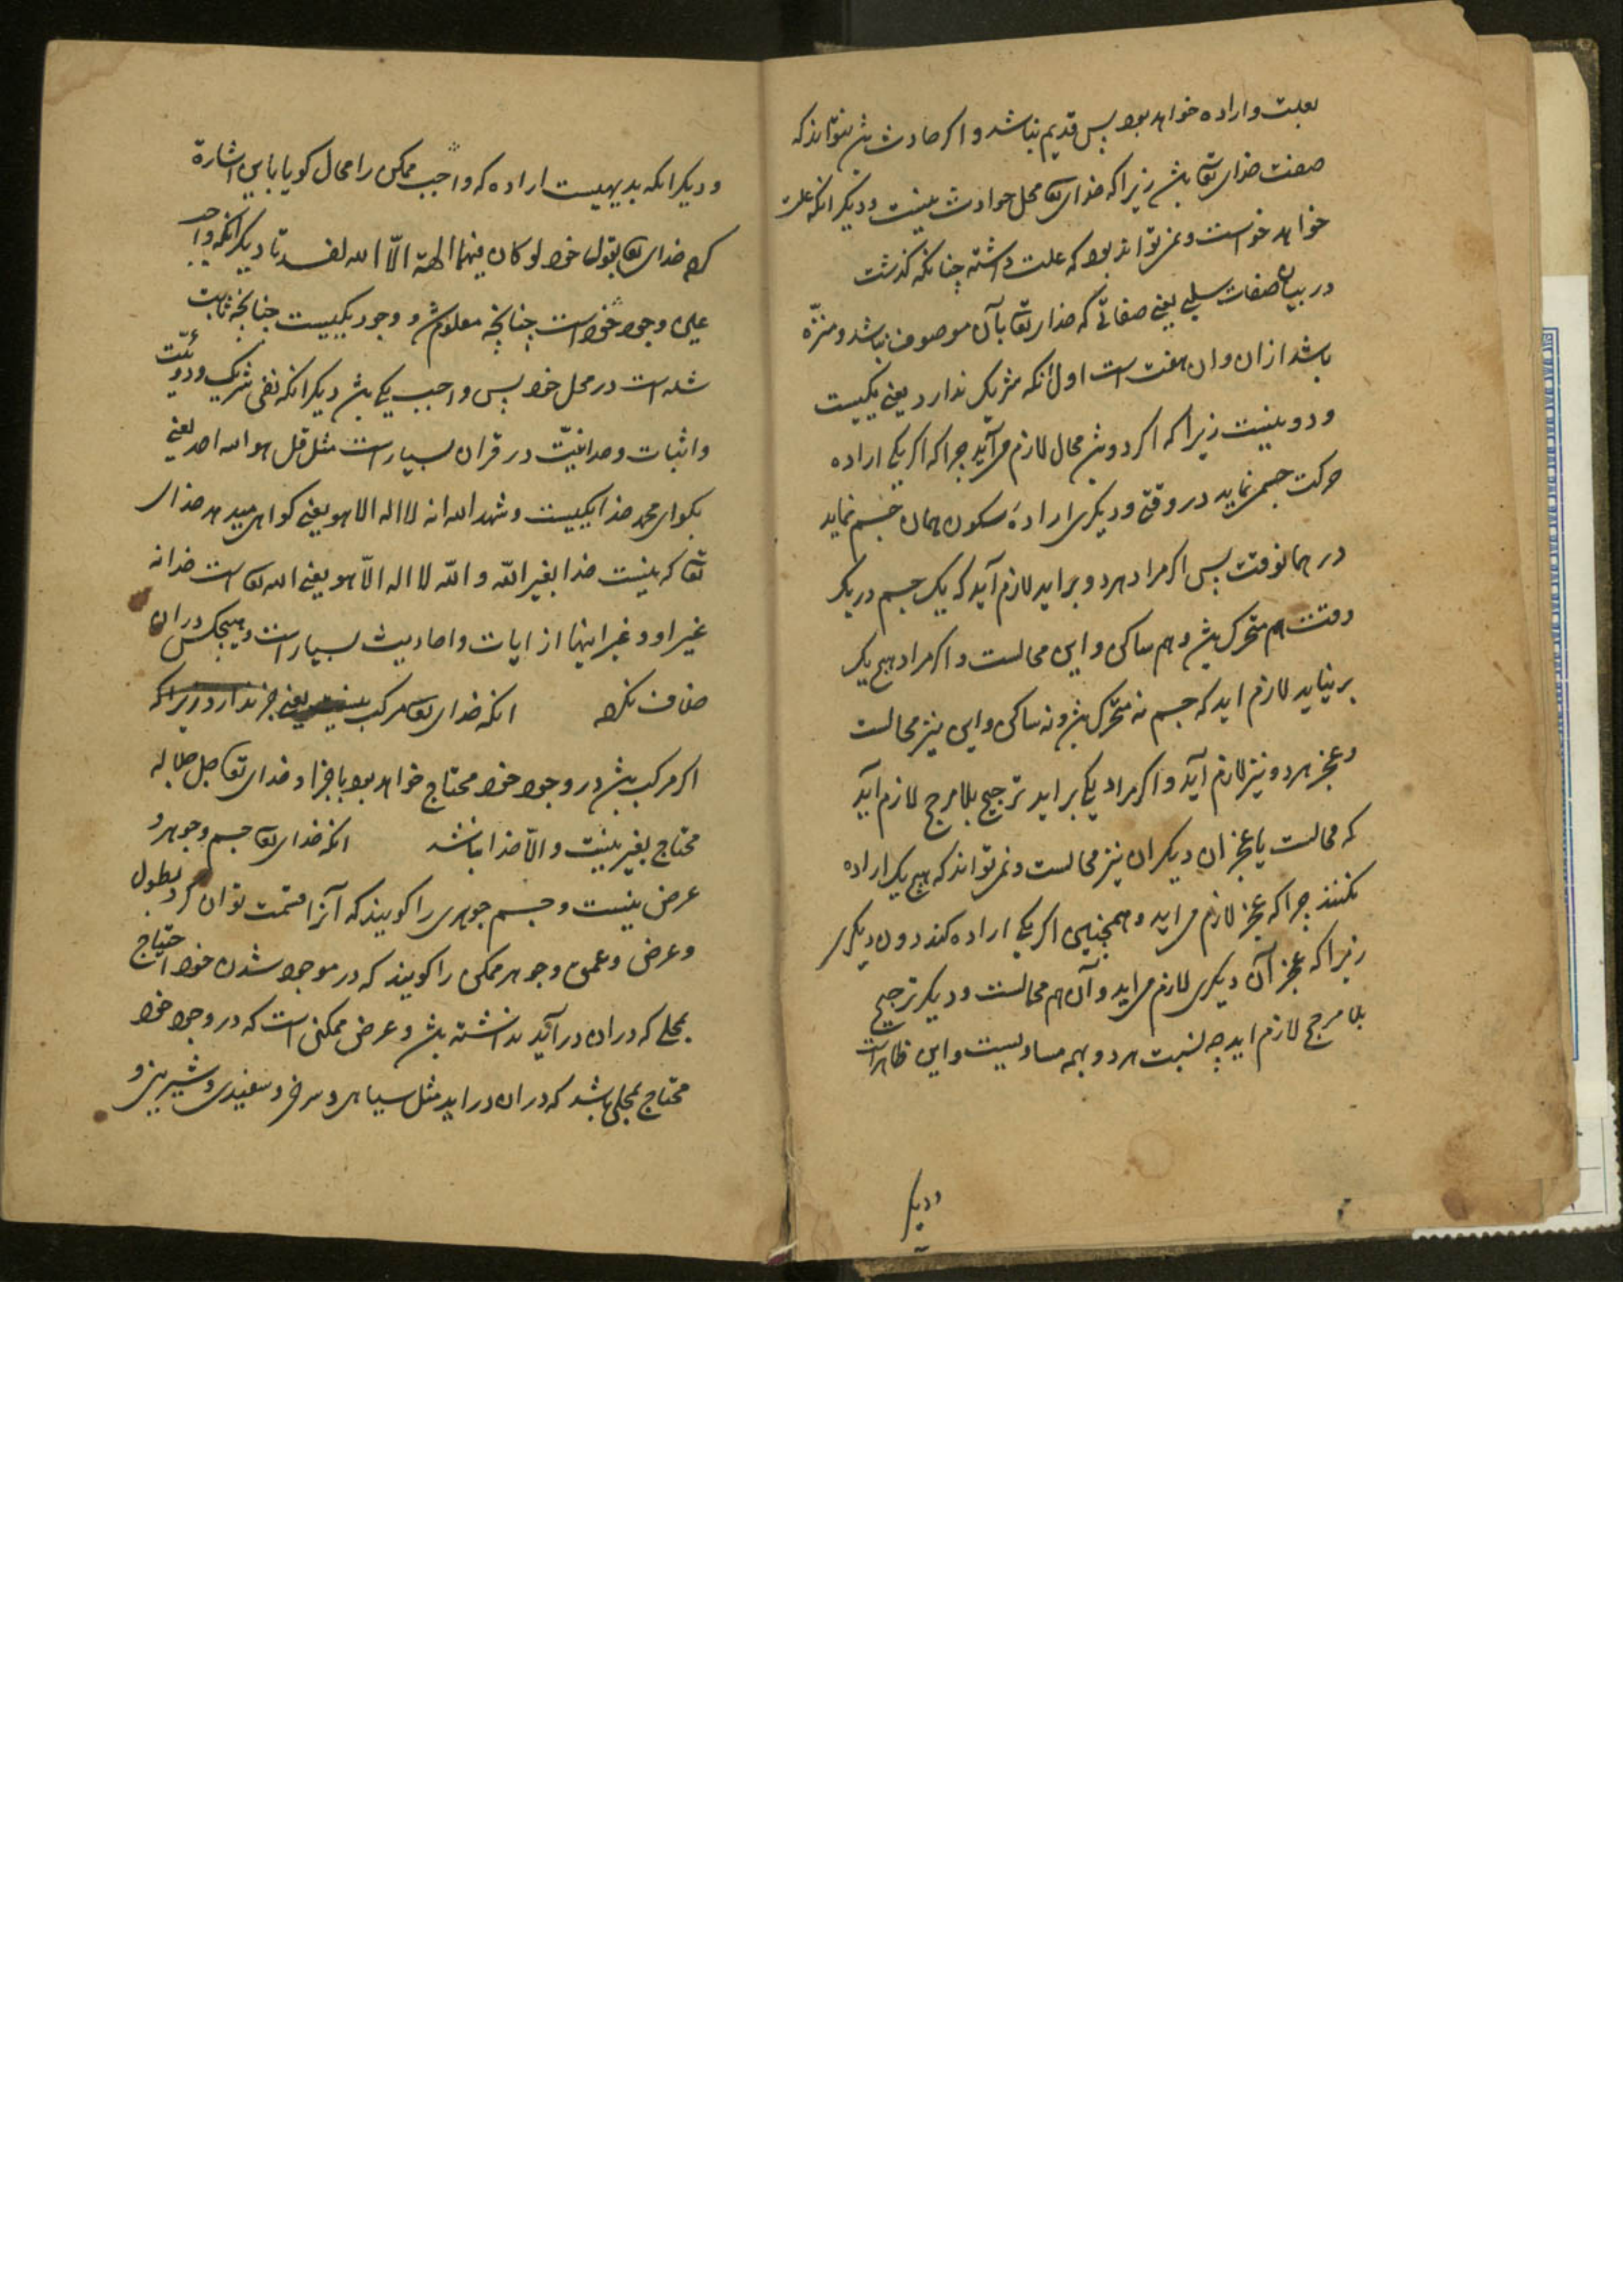 بعلت و اراده خواهد بود پس قدیم نباشد و اکر حادث بش نتواند که
صفت خدای تعا بش زیرا که خدای تعا محل حوادث نیست و دیکر انکه علت
خواهد خواست و نمیتواند بود که علت داشته چنانکه کذشت
در بیان صفات سلبی یعنی صفاتی که خدای تعا بآن موصوف نباشد و منزّه
باشد ازان و ان هفت است اول آنکه شریک ندارد یعنی یکیست
و دو نیست زیرا که اکر دو بش محال لازم می‌آید چرا که اکر یکی اراده
حرکت جسمی نماید در وقتی و دیکری ارادهٔ سکون همان جسم نماید
در همانوقت پس اکر مراد هر دو براید لازم آید که یک جسم در یک
وقت هم متحرک بش و هم ساکن و این محالست و اکر مراد هیچ یک
بر نیاید لازم اید که جسم نه متحرک بش و نه ساکن و این نیز محالست
و عجز هر دو نیز لازم آید و اکر مراد یکی براید ترجیح بلا مرجح لازم آید
که محالست یا عجز ان دیکر ان نیز محالست و نمیتواند که هیچ یک اراده
نکنند چرا که عجز لازم می‌اید و همچنین اکر یکی اراده کند دون دیکری
زیرا که عجز آن دیکری لازم می‌اید و آن هم محالست و دیکر ترجیح
بلا مرجح لازم اید چه نسبت هر دو بهمه مساویست و این ظاهر است
و دیکر
و دیکر انکه بدیهیست اراده که واجب ممکن را محال کویا باین اشارة
کرد خدای تعا بقول خود لو کان فیهما الهة الاّ الله لفسدتا دیکر انکه واجد
علی وجود خود است چنانچه معلوم ش و وجود یکیست چنانچه ثابت
شده است در محل خود پس واجب یکی بش دیکر انکه نفی شریک و دوئیّت
و اثبات وحدانیّت در قران بسیار است مثل قل هو الله احد یعنی
بکو ای محمد خدا یکیست و شهد الله انه لا اله الا هو یعنی کواهی میدهد خدای
تعا که نیست خدا بغیر الله و الله لا اله الاّ هو یعنی الله تعا است خدا نه
غیر او و غیر اینها از ایات و احادیث بسیار است و هیچکس دران
خلاف نکرد انکه خدای تعا مرکب نیست یعنی جزء ندارد زیرا که
اکر مرکب بش در وجود خود محتاج خواهد بود باجزا و خدای تعا جل جلاله
محتاج بغیر نیست و الاّ خدا نباشد انکه خدای تعا جسم و جوهر و
عرض نیست و جسم جوهری را کویند که آنرا قسمت توان کرد بطول
و عرض و عمق و جوهر ممکنی را کویند که در موجود شدن خود احتیاج
بمحلی که دران درآید نداشته بش و عرض ممکنی است که در وجود خود
محتاج بمحلی باشد که دران دراید مثل سیاهی و سرخی و سفیدی و شیرینی و